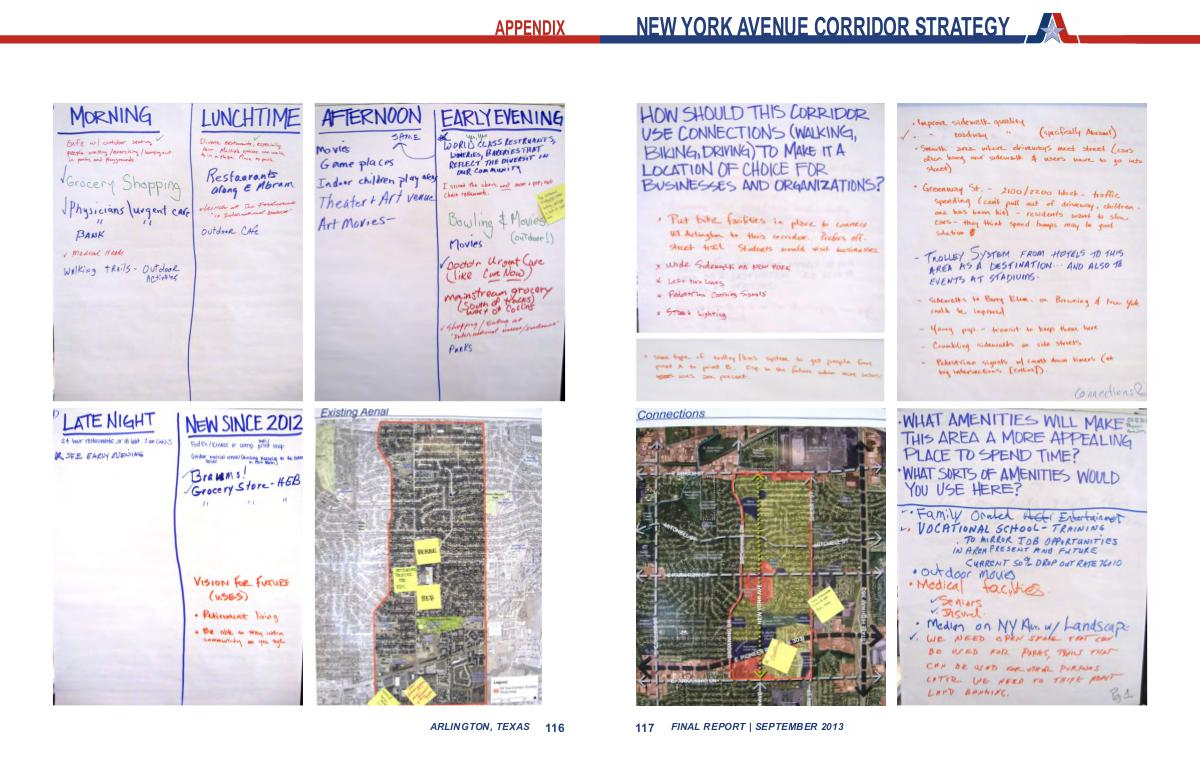 APPENDIX
NEW YORK AVENUE CORRIDOR STRATEGY
MORNING
Cafe w/ outdoor seating
people walking/exercising/hanging out
in parks and playgrounds
Grocery Shopping
Physicians/urgent care
" "
BANK
Medical Needs
Walking trails - Outdoor
Activities
LUNCHTIME
Diverse restaurants, especially
Restaurants
along E Abram
OUTDOOR CAFE
AFTERNOON
SAME
Movies
Game places
Indoor children play area
Theater + Art venue
Art Movies-
EARLY EVENING
WORLD CLASS RESTAURANTS,
WINERIES, BAKERIES THAT
REFLECT THE DIVERSITY IN
OUR COMMUNITY
I second the above and want a pub, not
chain restaurant.
Bowling & Movies
(outdoor!)
Movies
Doctor Urgent Care
(like Care Now)
mainstream grocery
(South of tracks)
west of Collins
Shopping/Eating at
PARKS
HOW SHOULD THIS CORRIDOR
USE CONNECTIONS (WALKING,
BIKING, DRIVING) TO MAKE IT A
LOCATION OF CHOICE FOR
BUSINESSES AND ORGANIZATIONS?
Put bike facilities in place to connect
UT Arlington to this corridor. Prefers off-
street trail. Students would visit businesses.
x Wide Sidewalk on NEW YORK
x Less turn lanes
x Pedestrian Crossing Signals
x Street Lighting
Some type of trolley/bus system to get people from
point A to point B. Esp in the future when more
uses are present.
• Improve sidewalk quality
- roadway " (specifically Abram)
• Smooth area where driveways meet street (cars
often hang over sidewalk & users have to go into
street)
• Greenway St. - 2100/2200 block - traffic
speeding (can't pull out of driveway, children -
one has been hit - residents want to slow
cars - they think speed bumps may be good
solution
- TROLLEY SYSTEM FROM HOTELS TO THIS
AREA AS A DESTINATION... AND ALSO TO
EVENTS AT STADIUMS.
- Sidewalks to Berry Elem. on Browning & New York
could be improved
- Young pop - transit to keep them here
- Crumbling sidewalks on side streets
- Pedestrian signals w/ count down timers (at
big intersections (Collins)
Connections 2
LATE NIGHT
SEE EARLY EVENING
NEW SINCE 2012
FedEx/Kinkos or comp print shop
Braums!
Grocery Store - HEB
" " "
VISION FOR FUTURE
(USES)
• Retirement living
• Be able to stay within
community as you age
Existing Aerial
HEB
Legend
Connections
WHAT AMENITIES WILL MAKE
THIS AREA A MORE APPEALING
PLACE TO SPEND TIME?
WHAT SORTS OF AMENITIES WOULD
YOU USE HERE?
• Family Oriented Entertainment
VOCATIONAL SCHOOL - TRAINING
. TO MIRROR JOB OPPORTUNITIES
IN AREA PRESENT AND FUTURE
CURRENT 50% DROP OUT RATE 76010
• Outdoor Movies
• Medical facilities
Seniors
• Median on NY Ave w/ Landscape
WE NEED OPEN SPACE THAT CAN
BE USED FOR PARKS, TRAILS THAT
CAN BE USED FOR OTHER PURPOSES
LATER WE NEED TO THINK ABOUT
BANKING.
ARLINGTON, TEXAS 116
117 FINAL REPORT | SEPTEMBER 2013